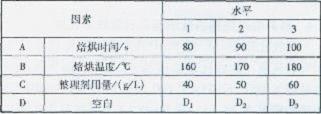 因素 水平
1 2 3
A 焙烘时间/s 80 90 100
B 焙烘温度/℃ 160 170 180
C 整理剂用量/(g/L) 40 50 60
D 空白 D₁ D₂ D₃